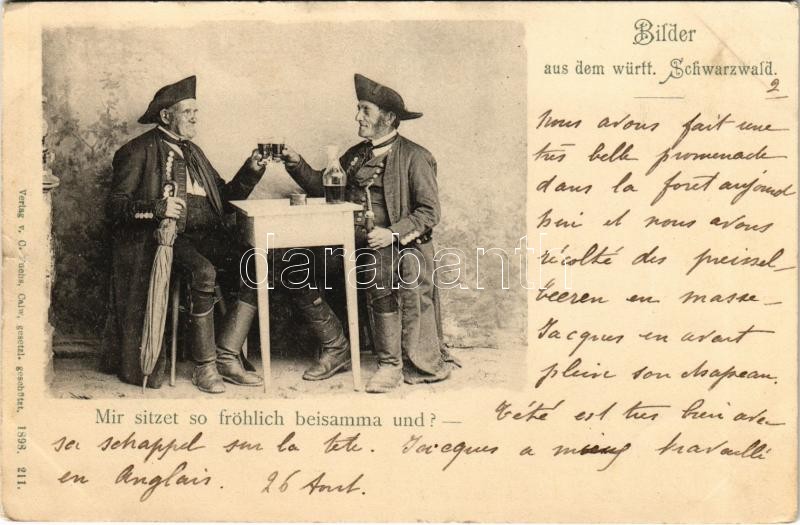 Bilder
aus dem württ. Schwarzwald.
2
Nous avons fait une
très belle promenade
dans la foret aujourd
hui et nous avons
récolté des preissel-
beeren en masse -
Jacques en avait
plein son chapeau.
Mir sitzet so fröhlich beisamma und? —
Tété est tres bien avec
sa schappel sur la tete. Jacques a mieux travaillé
en Anglais. 26 Aout.
Verlag v. C. Fuchs, Calw, gesetzl. geschützt. 1898. 211.
darabanth